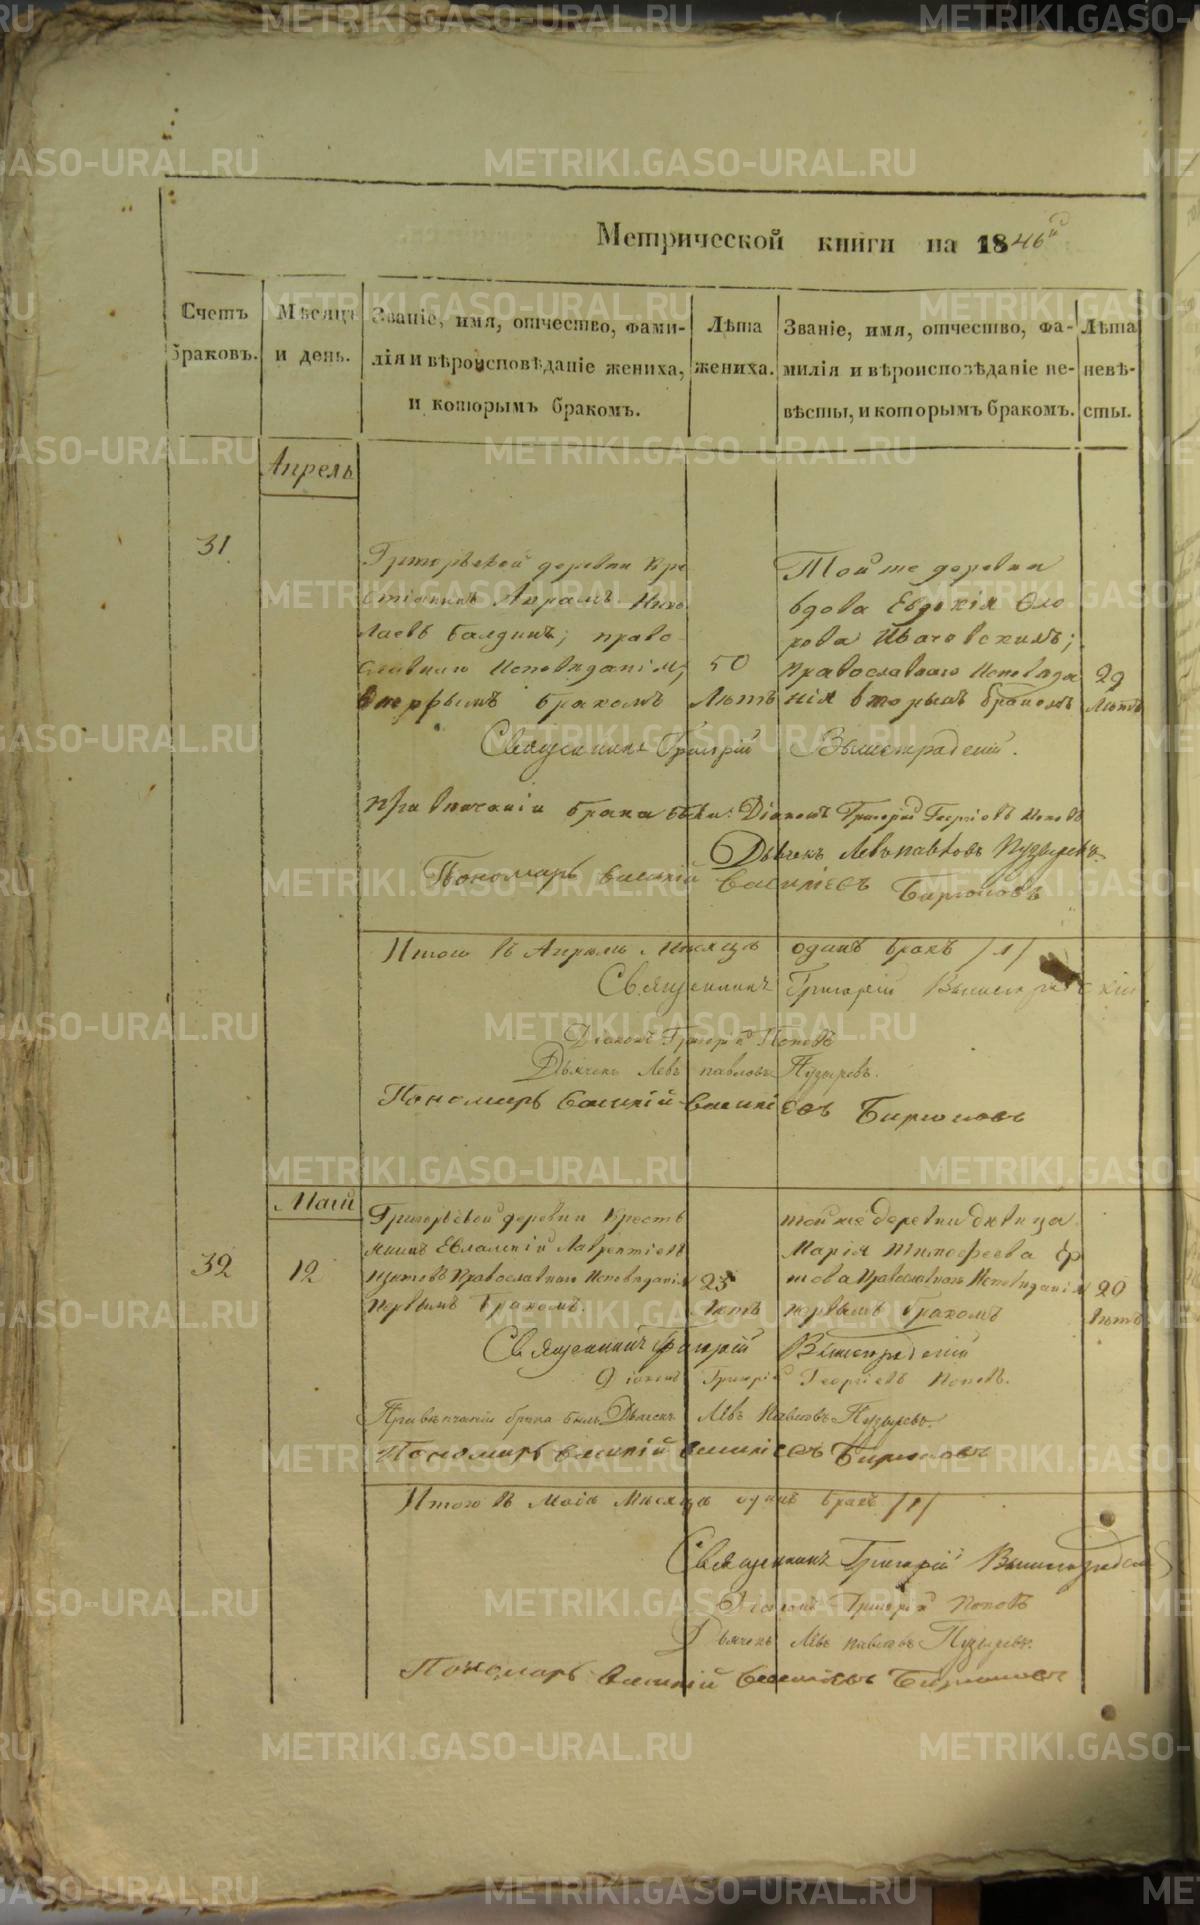 METRIKI.GASO-URAL.RU
Метрической книги на 1846й
Счетъ браковъ.
Мѣсяцъ и день.
Званіе, имя, отчество, фами-
лія и вѣроисповѣданіе жениха,
и которымъ бракомъ.
Лѣта
жениха.
Званіе, имя, отчество, фа-
милія и вѣроисповѣданіе не-
вѣсты, и которымъ бракомъ.
Лѣта
невѣ-
сты.
Апрель
31
деревни Кре
стіянинъ Николаевъ
право
славнаго Исповѣданія,
вторымъ бракомъ
50
Лѣтъ
Той же деревни
вдова Евдокія
православнаго Исповѣда
нія вторымъ бракомъ
29
Лѣтъ
Священникъ Григорій Вышеградскій.
При вѣнчаніи брака были: Діаконъ Григорій Георгіевъ Поповъ
Дьячекъ Левъ павловъ Пузыревъ.
Пономарь василій василіевъ Бирюковъ
Итого въ Апрѣлѣ Мѣсяцѣ одинъ бракъ /1/
Священникъ Григорій Вышеградскій
Діаконъ Григорій Поповъ
Дьячекъ Левъ павловъ Пузыревъ.
Пономарь Василій Василіевъ Бирюковъ
Маій
32
12
Григорьевой деревни Кресть
янинъ Евлампій Лаврентіевъ
Православнаго Исповѣданія
первымъ бракомъ.
23
Лѣтъ
той же деревни дѣвица
Марія Тимофеева
Православнаго Исповѣданія
первымъ бракомъ
20
Лѣтъ
Священникъ Григорій Вышеградскій
Діаконъ Григорій Георгіевъ Поповъ.
При вѣнчаніи брака были Дьячекъ Левъ Павловъ Пузыревъ.
Пономарь василій василіевъ Бирюковъ
Итого въ Маіѣ Мѣсяцѣ одинъ бракъ /1/
Священникъ Григорій Вышеградскій
Діаконъ Григорій Поповъ
Дьячекъ Левъ павловъ Пузыревъ.
Пономарь Василій Василіевъ Бирюковъ